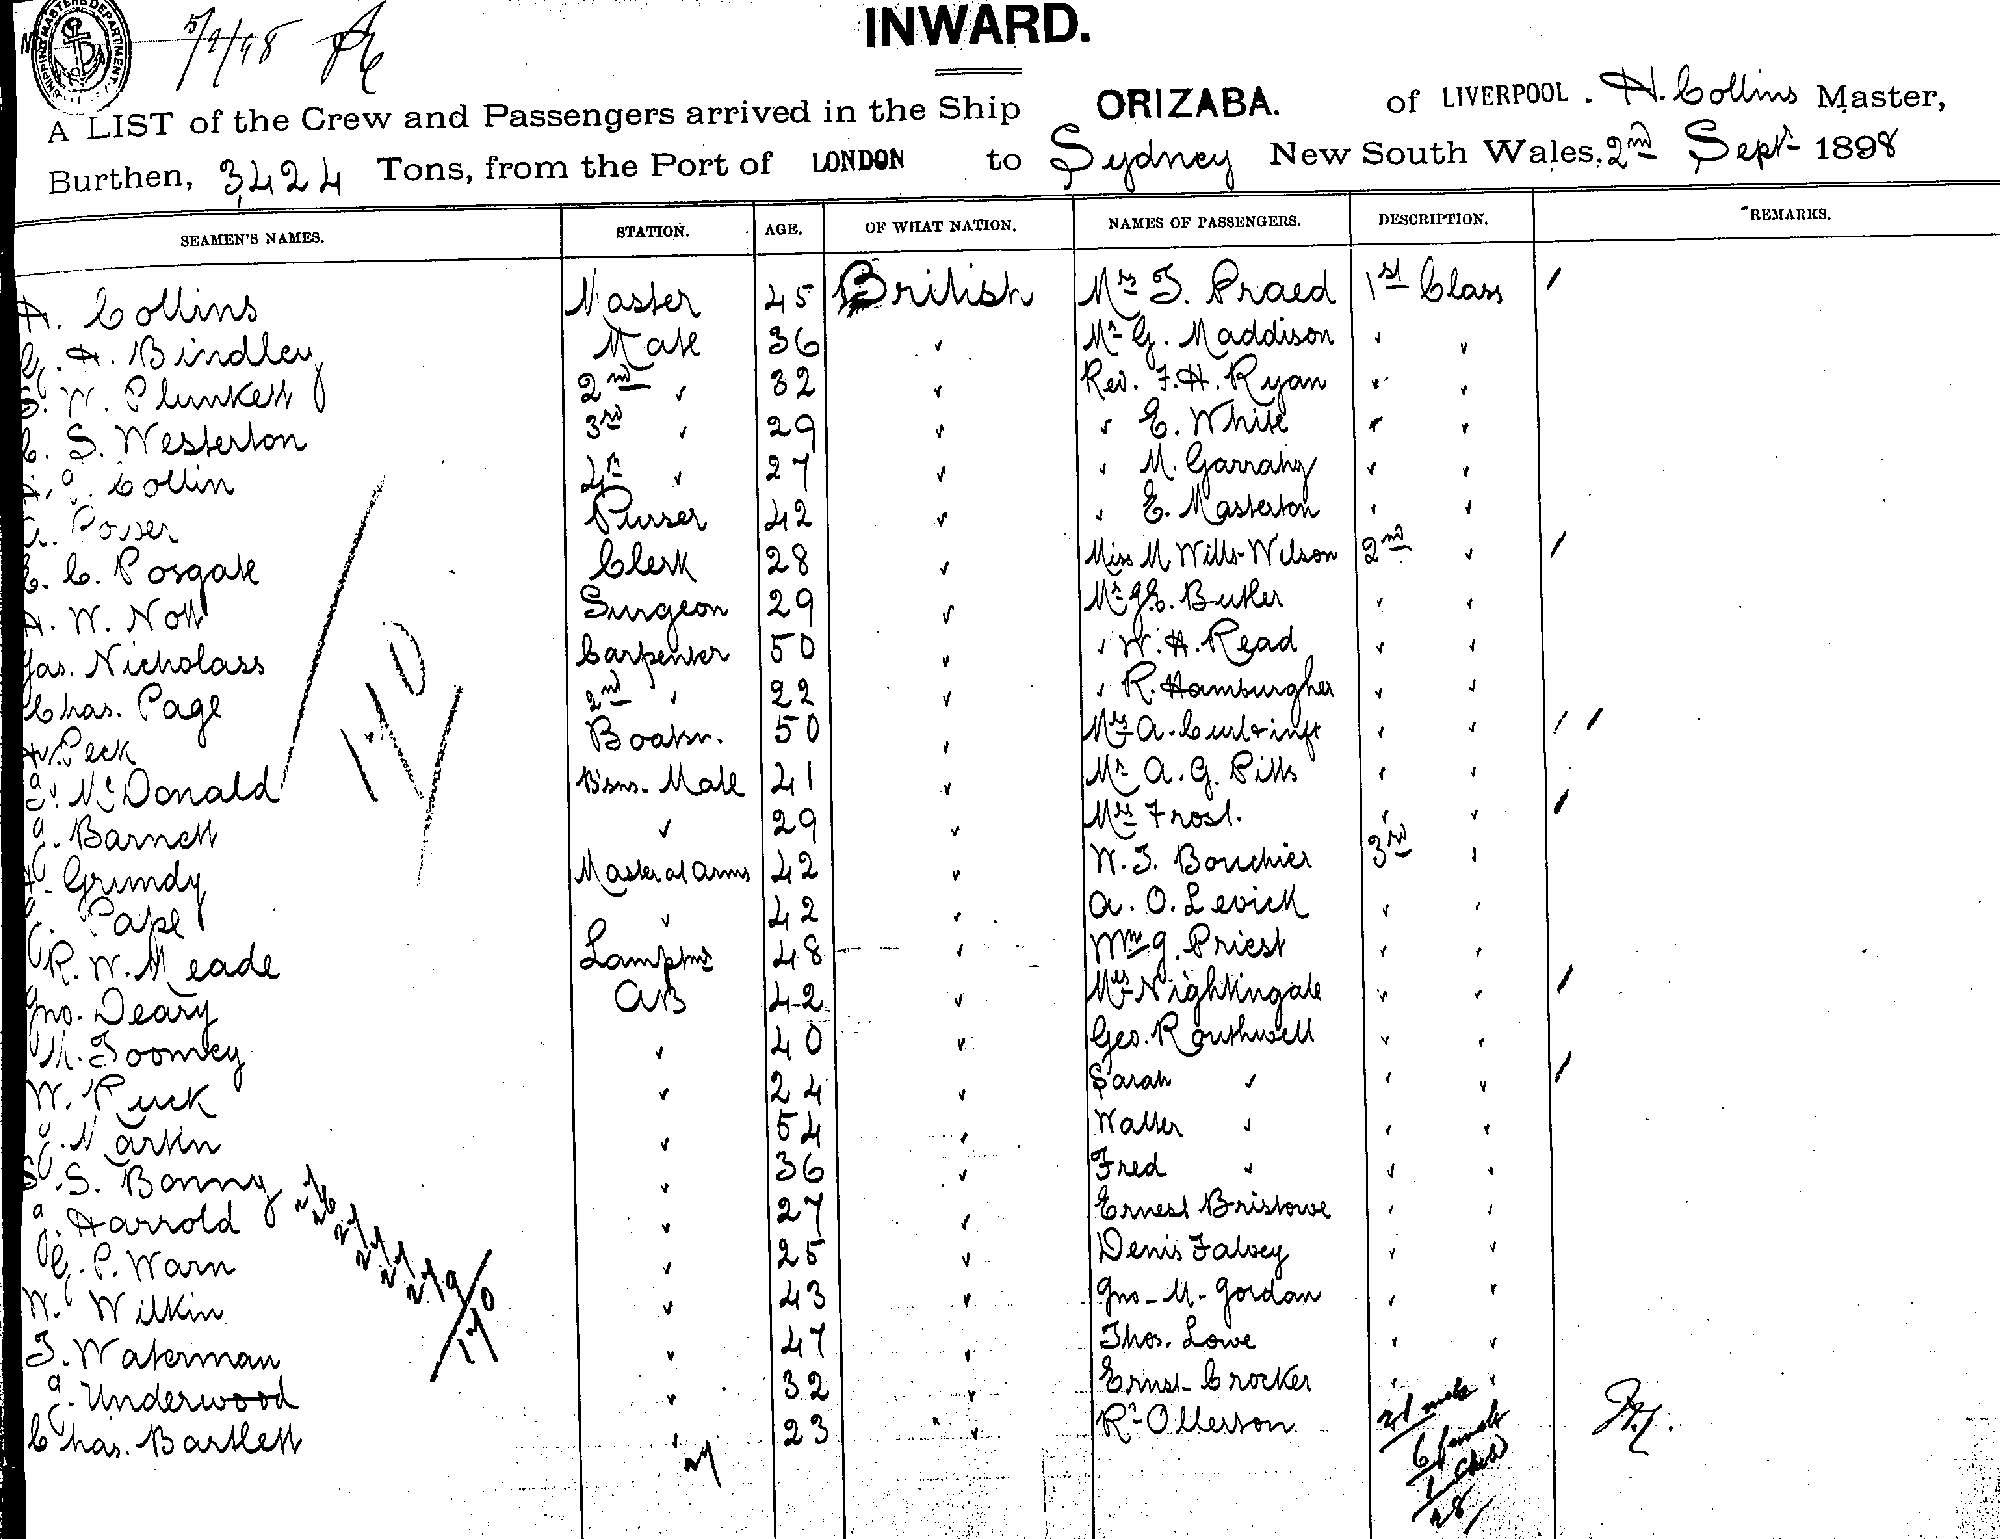 5/9/98
INWARD.
A LIST of the Crew and Passengers arrived in the Ship ORIZABA. of LIVERPOOL. A. Collins Master,
Burthen, 3424 Tons, from the Port of LONDON to Sydney New South Wales, 2nd Sept 1898
SEAMEN'S NAMES. STATION. AGE. OF WHAT NATION. NAMES OF PASSENGERS. DESCRIPTION. REMARKS.
A. Collins Master 45 British Mrs T. Praed 1st Class /
A. Bindley Mate 36 " Mr G. Maddison " "
W. Plunkett 2nd " 32 " Rev. F.H. Ryan " "
S. Westerton 3rd " 29 " " E. White " "
Collin 4th " 27 " " M. Garrahy " "
Posser Purser 42 " " E. Masterton " "
C. Posgate Clerk 28 " Miss M Wills-Wilson 2nd " /
A. W. Nott Surgeon 29 " Mr Butler " "
Jas. Nicholass Carpenter 50 " " W. H. Read " "
Chas. Page 2nd " 22 " " R. Hamburgher " "
Peck Boatsn. 50 " Mrs A. " " / /
McDonald Bsns. Mate 41 " Mr A. G. Pitts " "
Barnett " 29 " Mrs Frost. " " /
Grundy Master at Arms 42 " W. J. Bouchier 3rd "
Pape " 42 " A. O. Levick " "
R. W. Meade Lamptmr 48 " Wm G. Priest " "
Jno. Deary AB 42 " Mrs Nightingale " " /
M. Toomey " 40 " Geo. Routhwell " "
W. Ruck " 24 " Sarah " " " /
Martin " 54 " Walter " " "
S. Bonny " 36 " Fred " " "
Harrold " 27 " Ernest Bristowe " "
G. P. Warn " 25 " Denis Falvey " "
W. Wilkin " 43 " Jno. M. Gordon " "
T. Waterman " 47 " Thos. Lowe " "
Underwood " 32 " Ernst. Crocker " "
Chas. Bartlett " 23 " Rt Ollerson
27
21 male
6 female
1 child
28/